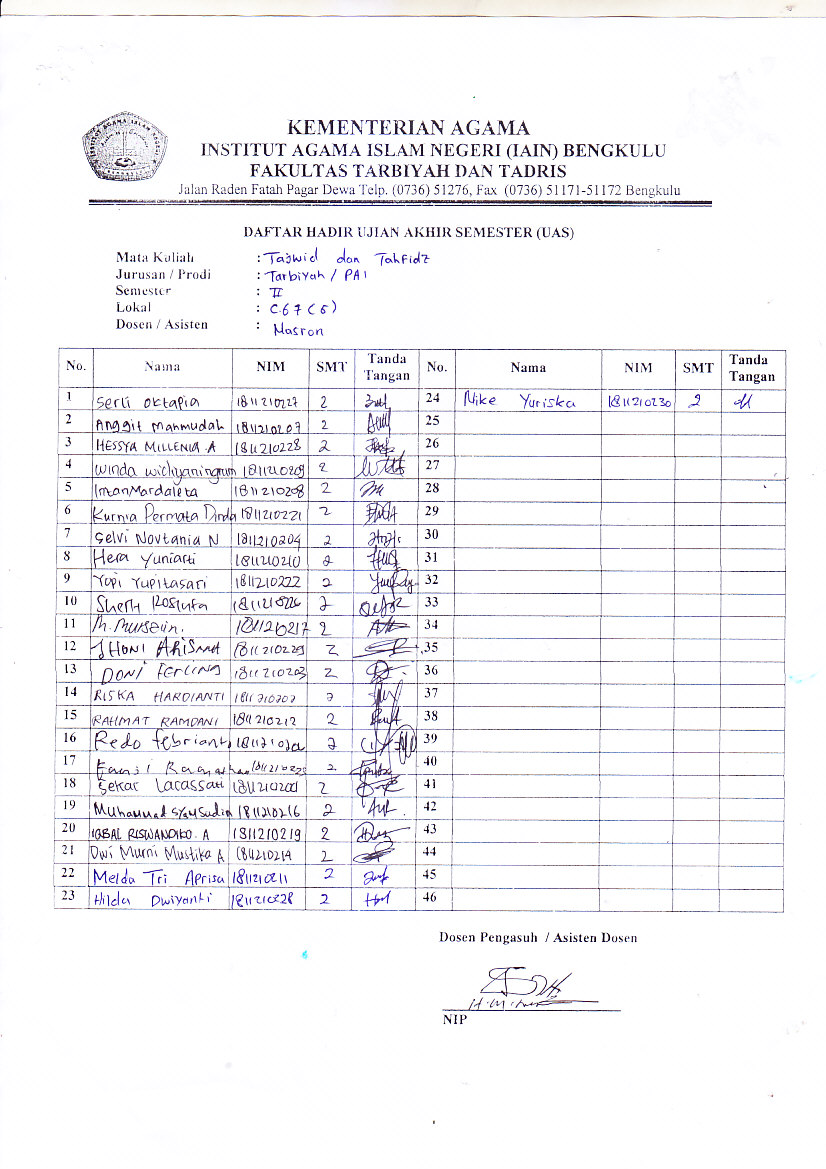 KEMENTERIAN AGAMA
INSTITUT AGAMA ISLAM NEGERI (IAIN) BENGKULU
FAKULTAS TARBIYAH DAN TADRIS
Jalan Raden Fatah Pagar Dewa Telp. (0736) 51276, Fax (0736) 51171-51172 Bengkulu
DAFTAR HADIR UJIAN AKHIR SEMESTER (UAS)
Mata Kuliah : Tajwid dan Tahfidz
Jurusan / Prodi : Tarbiyah / PAI
Semester : II
Lokal : C.67 (5)
Dosen / Asisten : Nasron
No. Nama NIM SMT Tanda Tangan No. Nama NIM SMT Tanda Tangan
1 Serli Oktapia 1811210227 2 24 Nike Yuriska 1811210230 2
2 Anggit Mahmudah 1811210207 2 25
3 HESSYA MILLENIA.A 1811210228 2 26
4 Winda Widiyaningrum 1811210209 2 27
5 Intan Mardaleta 1811210208 2 28
6 Kurnia Permata Dinda 1811210221 2 29
7 Selvi Novtania N 1811210204 2 30
8 Hera Yuniarti 1811210210 2 31
9 Yopi Yupitasari 1811210222 2 32
10 2 33
11 M. Nursein. 1811210217 2 34
12 JHONI ARISMA 1811210229 2 35
13 DONI FERLING 1811210203 2 36
14 RISKA HARDIANTI 1811210202 2 37
15 RAHMAT RAMDANI 1811210212 2 38
16 Redo Febrianto 2 39
17 2 40
18 Sekar Lacassati 1811210201 2 41
19 Muhammad Syamsudin 1811210216 2 42
20 IQBAL RISWANDIKO. A 1811210219 2 43
21 Dwi Murni Mustika A 1811210214 2 44
22 Melda Tri Aprisa 1811210211 2 45
23 Hilda Dwiyanti 1811210228 2 46
Dosen Pengasuh / Asisten Dosen
NIP